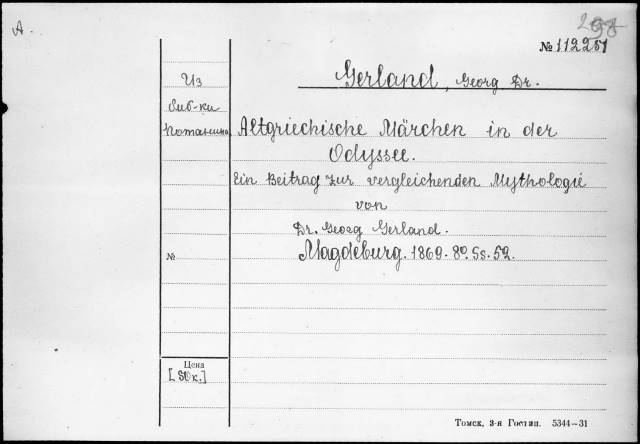 A.
298
№ 112251
Из
биб-ки
Потанина
Gerland, Georg Dr.
Altgriechische Märchen in der
Odyssee.
Ein Beitrag zur vergleichenden Mythologie
von
Dr. Georg Gerland.
Magdeburg. 1869. 8º. Ss. 52.
№
Цена
[50 к.]
Томск, 3-я Гостип. 5344—31